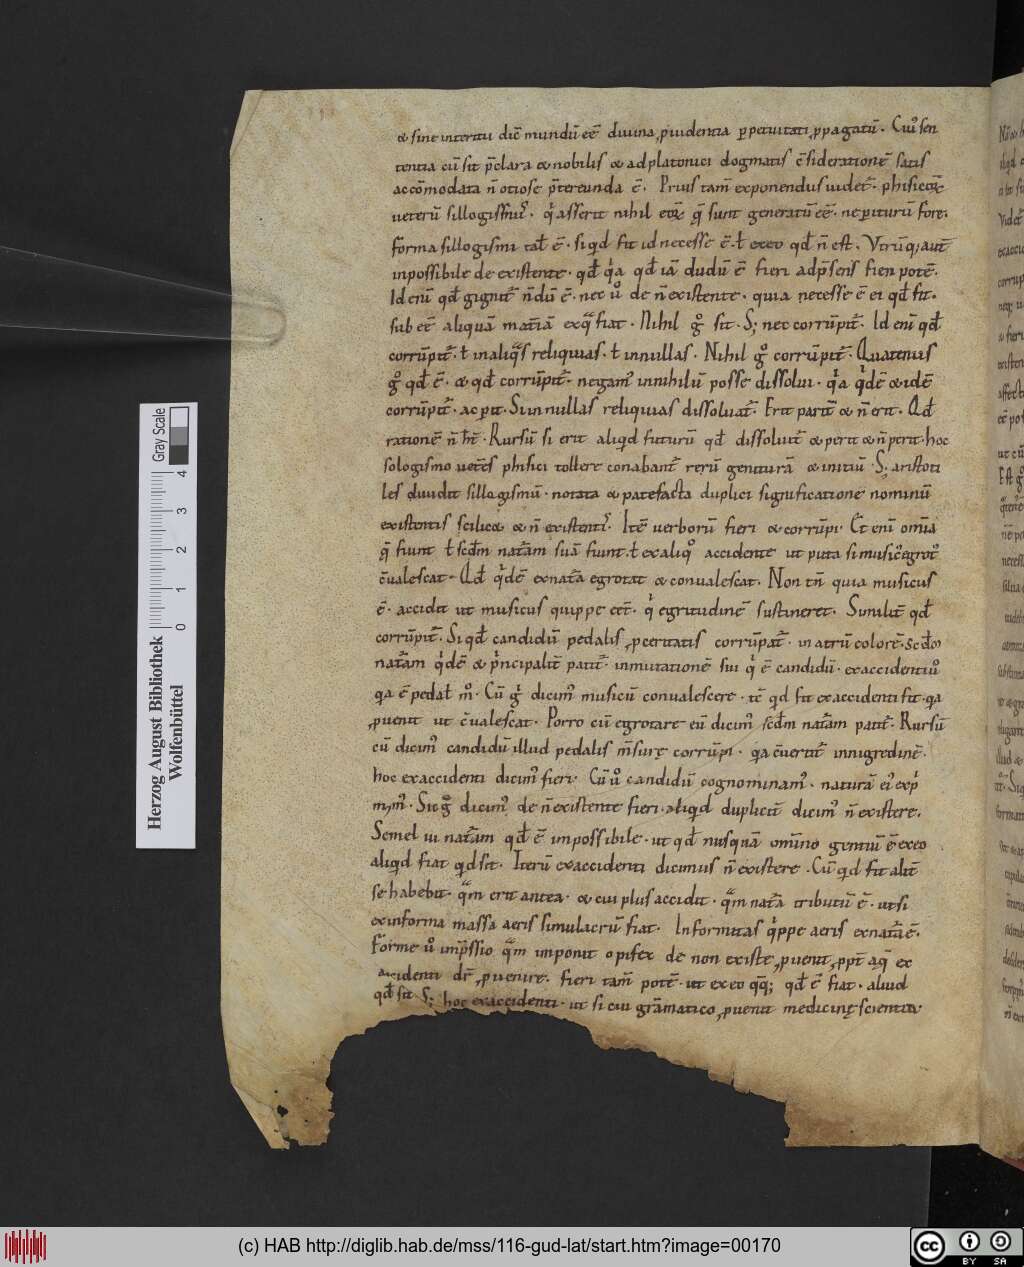 & sine interitu dic̄ mundū eē divina p̱uidentia p̱petuitati p̱pagatū. Cui᷒ sen
tentia cū sit p̄clara & nobilis & ad platonici dogmatis c̄sideratione᷒ satis
accōmodata n̄ otiose p̄tereunda ē. Prius tam̄ exponendus uidet᷒. phisicoꝝ
ueterū sillogism᷒. asserit nihil eoꝝ q̄ sunt generatū eē. ne periturū fore.
forma sillogismi tal̄ ē. siqd fit id necesse ē. ł ex eo qd̄ n̄ est. Vtrūq; aut̄
inpossibile de existente. qd̄ qa qd̄ iā dudū ē fieri ad p̄sens fieri potē.
Id enī qd̄ gignit᷒ n̄dū ē. nec ů de n̄ existente. quia necesse ē ei qd̄ fit.
sub eē aliquā mat̄iā ex qͣ fiat. Nihil g̊ sit. S; nec corrūpit᷒. Id enī qd̄
corrūpit᷒. ł in aliqͣs reliquias. ł in nullas. Nihil g̊ corrūpit᷒. Quatenus
g̊ qd̄ ē. & qd̄ corrūpit᷒. negam᷒ in nihilū posse dissolui. qa qͥdē & idē
corrūpit᷒. ac perit. Si in nullas reliquias dissoluat᷒. Erit parit̄ & n̄ erit. Qd̄
rationē n̄ h̄t. Rursū si erit aliqd futurū qd̄ dissoluit᷒ & perit & n̄ perit. hoc
sologismo uet̄es phisici tollere conabant᷒ rerū geniturā & initiū. S; aristoti
les diuidit sillogismū. notata & patefacta duplici significatione nominū
existentis scilic& & n̄ existenti᷒. Itē uerborū fieri & corrūpi. Et enī omīa
q̄ fiunt ł scd̄m nat̄am suā fiunt. ł ex aliq᷒ accidente ut puta si music᷒ egrot᷒
c̄ualescat. Qd̄ qͥdē ex nat̄a egrotat & conualescat. Non tn̄ quia musicus
ē. accidit ut musicus quippe eēt. qͥ egritudinē sustineret. Similit̄ qd̄
corrūpit᷒. Si qd̄ candidū pedalis p̱ceritatis corrūpat᷒. in atrū colorē. Scd̄m
nat̄am qͥdē & pͥncipalit̄ patit᷒. inmutationē sui qͥ ē candidū. ex accidenti ů
qa ē pedal̄ m᷒. Cū g̊ dicim᷒ musicū conualescere. tc̄ qd fit ex accidenti fit. qa
p̱uenit ut c̄ualescat. Porro cū egrotare eū dicim᷒ scd̄m nat̄am patit᷒. Rursū
cū dicim᷒ candidū illud pedalis m̄surę corrūpi. qa c̄uertit᷒ in nigredinē.
hoc ex accidenti dicim᷒ fieri. Cū ů candidū cognominam᷒. naturā ei᷒ expͥ
mim᷒. Sic g̊ dicim᷒ de n̄ existente fieri. aliqd dupliciē dicim᷒ n̄ existere.
Semel ui nat̄am qd̄ ē impossibile. ut qd̄ nusquā omīno gentiū ē ex eo
aliqd fiat qd sit. Iterū ex accidenti dicimus n̄ existere. Cū qd fit alit̄
se habebit. qͣm erit antea. & cui plus accidit. qͣm nat̄a tributū ē. ut si
ex informa massa aeris simulacrū fiat. Informitas qͥppe aeris ex nat̄a ē.
Forme ů imp̄ssio qͣm imponit opifex de non existe p̱uenit p̱pt̄ aq̄ ex
accidenti dr̄ p̱uenire. fieri tam̄ potē. ut ex eo qͣq; qd̄ ē fiat. aliud
qd̄ sit S; hoc ex accidenti. ut si cui grāmatico p̱uenit medicinę scientia
Herzog August Bibliothek
Wolfenbüttel
Gray Scale
0 1 2 3 4
(c) HAB http://diglib.hab.de/mss/116-gud-lat/start.htm?image=00170
cc BY SA